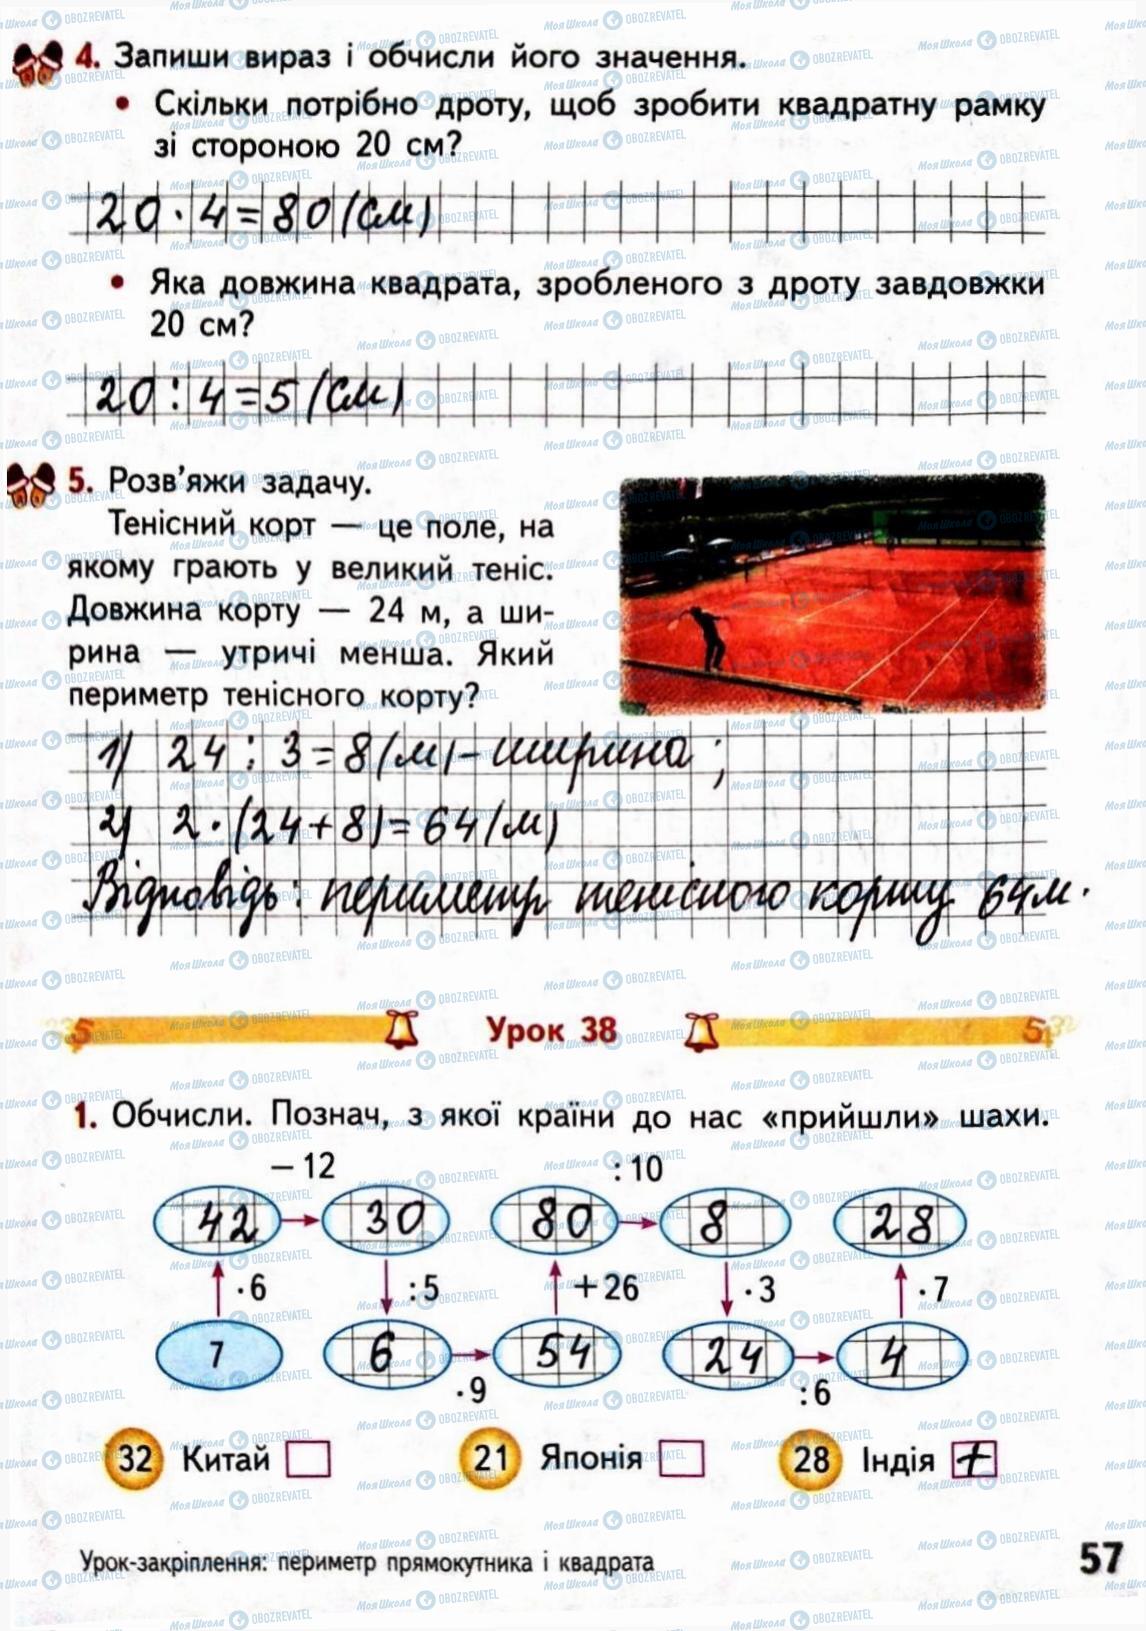 4. Запиши вираз і обчисли його значення.
• Скільки потрібно дроту, щоб зробити квадратну рамку
зі стороною 20 см?
20 · 4 = 80 (см)
• Яка довжина квадрата, зробленого з дроту завдовжки
20 см?
20 : 4 = 5 (см)
5. Розв’яжи задачу.
Тенісний корт — це поле, на
якому грають у великий теніс.
Довжина корту — 24 м, а ши-
рина — утричі менша. Який
периметр тенісного корту?
1) 24 : 3 = 8 (м) – ширина ;
2) 2 · (24 + 8) = 64 (м)
Відповідь : периметр тенісного корту 64 м.
Урок 38
1. Обчисли. Познач, з якої країни до нас «прийшли» шахи.
– 12 : 10
42 30 80 8 28
· 6 : 5 + 26 · 3 · 7
7 6 54 24 4
· 9 : 6
32 Китай 21 Японія 28 Індія +
Урок-закріплення: периметр прямокутника і квадрата
57
МояШкола OBOZREVATEL